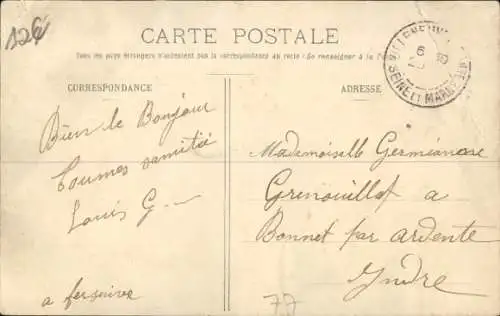 12€
CARTE POSTALE
Tous les pays étrangers n'acceptent pas la correspondance au recto (Se renseigner à la
CORRESPONDANCE
ADRESSE
SEINE ET MARNE
6
Bien le Bonjour
amitié
Louis G
a
Mademoiselle
Grenouillat a
Bonnet par ardente
Indre
77